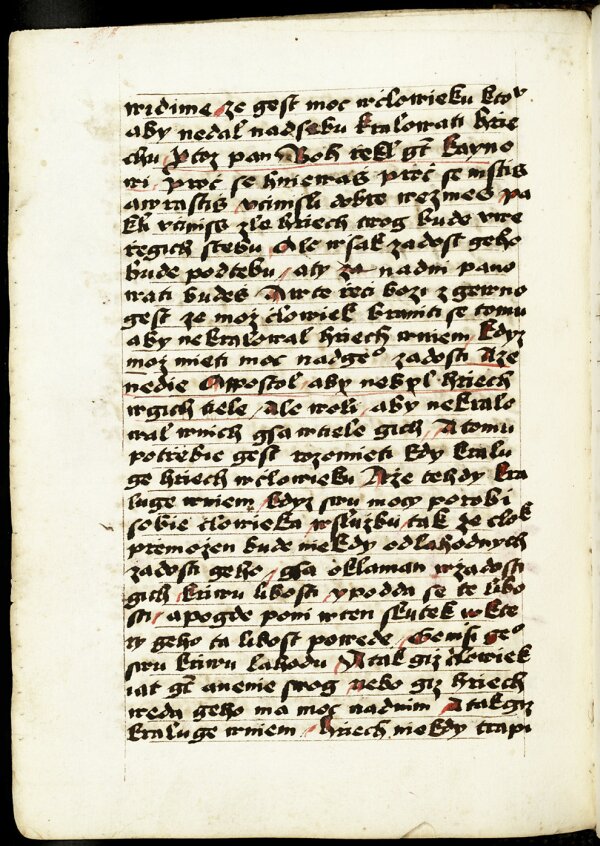 widime ze gest moc wclowieku kto
aby nedal nadsebu kralowati hrie
chu Protoz pan Boh rekl gt kayno
wi Proč se hniewas proč se mstis
awrastis vcinisli dobre wezmes pa
kli vcinis zle hriech twog bude vwe
regich stebu Ale wsak zadost geho
bude podtebu aty za nadni pano
wati budes A wte reci bozi zgewno
gest ze moz clowiek braniti se tomu
aby nekralowal hriech wniem kdyz
moz mieti moc nadge° zadosti Aze
nedie Apostol aby nebyl hriech
wgich tiele Ale woli aby nekralo
wal wnich gsa wtiele gich A tomu
potrebie gest rozomieti kdy kralu
ge hriech wclowieku Aze tehdy kra
luge wniem kdyz swu mocy porobi
sobie clowieka wsluzbu tak ze clok
premozen bude niekdy odlahodnych
zadosti geho gsa oklaman wzadosti
gich kriwu libosti ypodda se te libo
sti apogde poni wten skutek wkte
ry geho ta libost powede Gemsi ge°
swu kriwu lahodu A tak giz clowiek
iat gt anenie swog nebo giz hriech
weda geho ma moc nadnim A takgiz
kraluge wniem hriech niekdy trapi